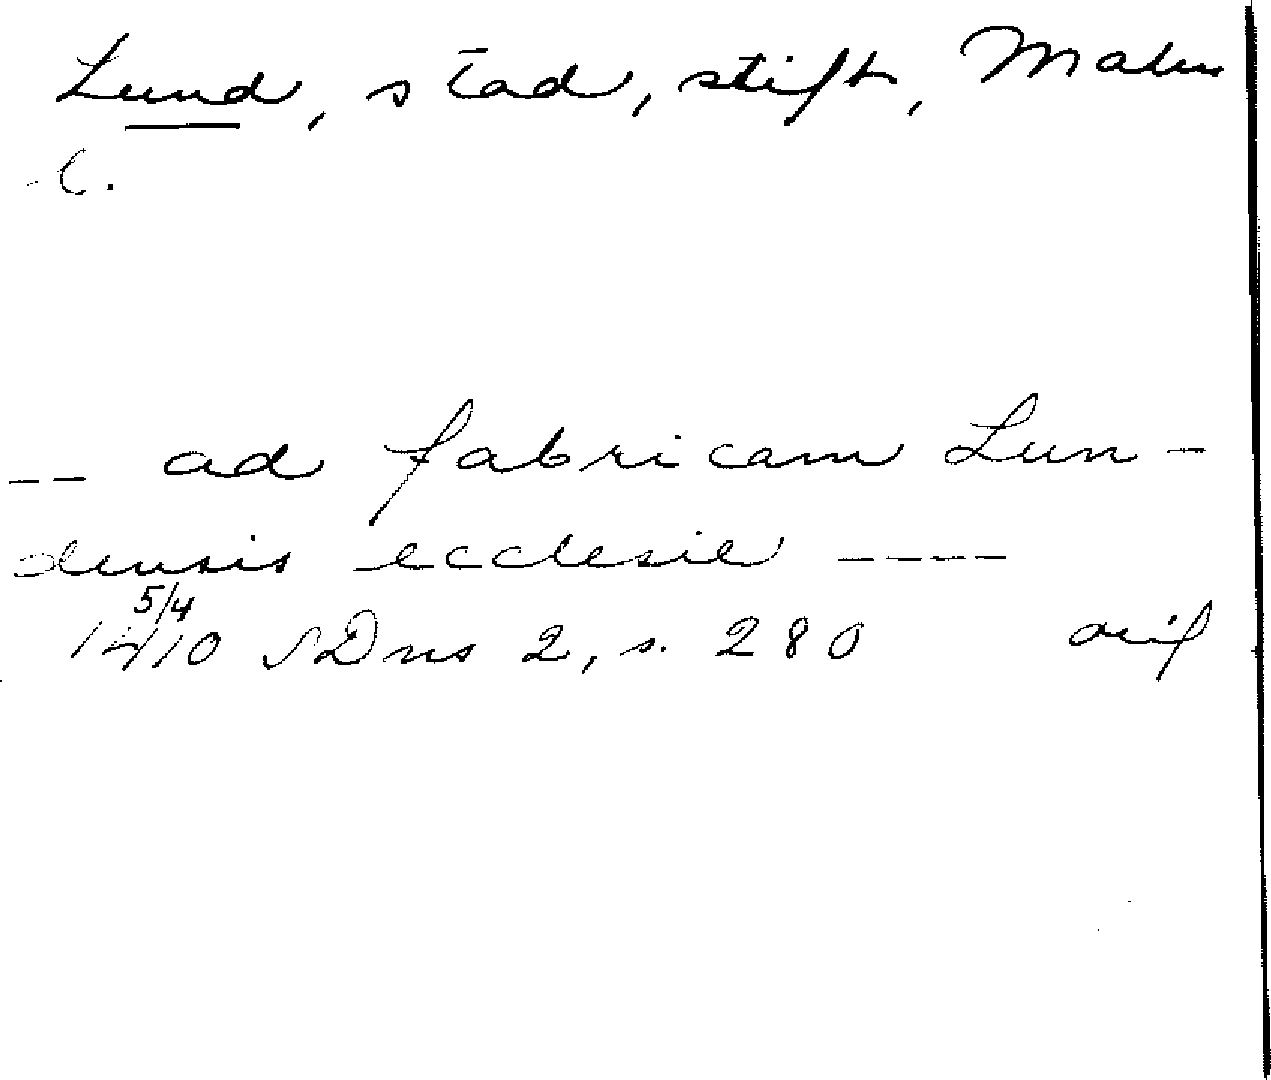 Lund, stad, stift, Malm
L.
-- ad fabricam Lun-
densis ecclesie ----
5/4
1410 SDns 2, s. 280 avif